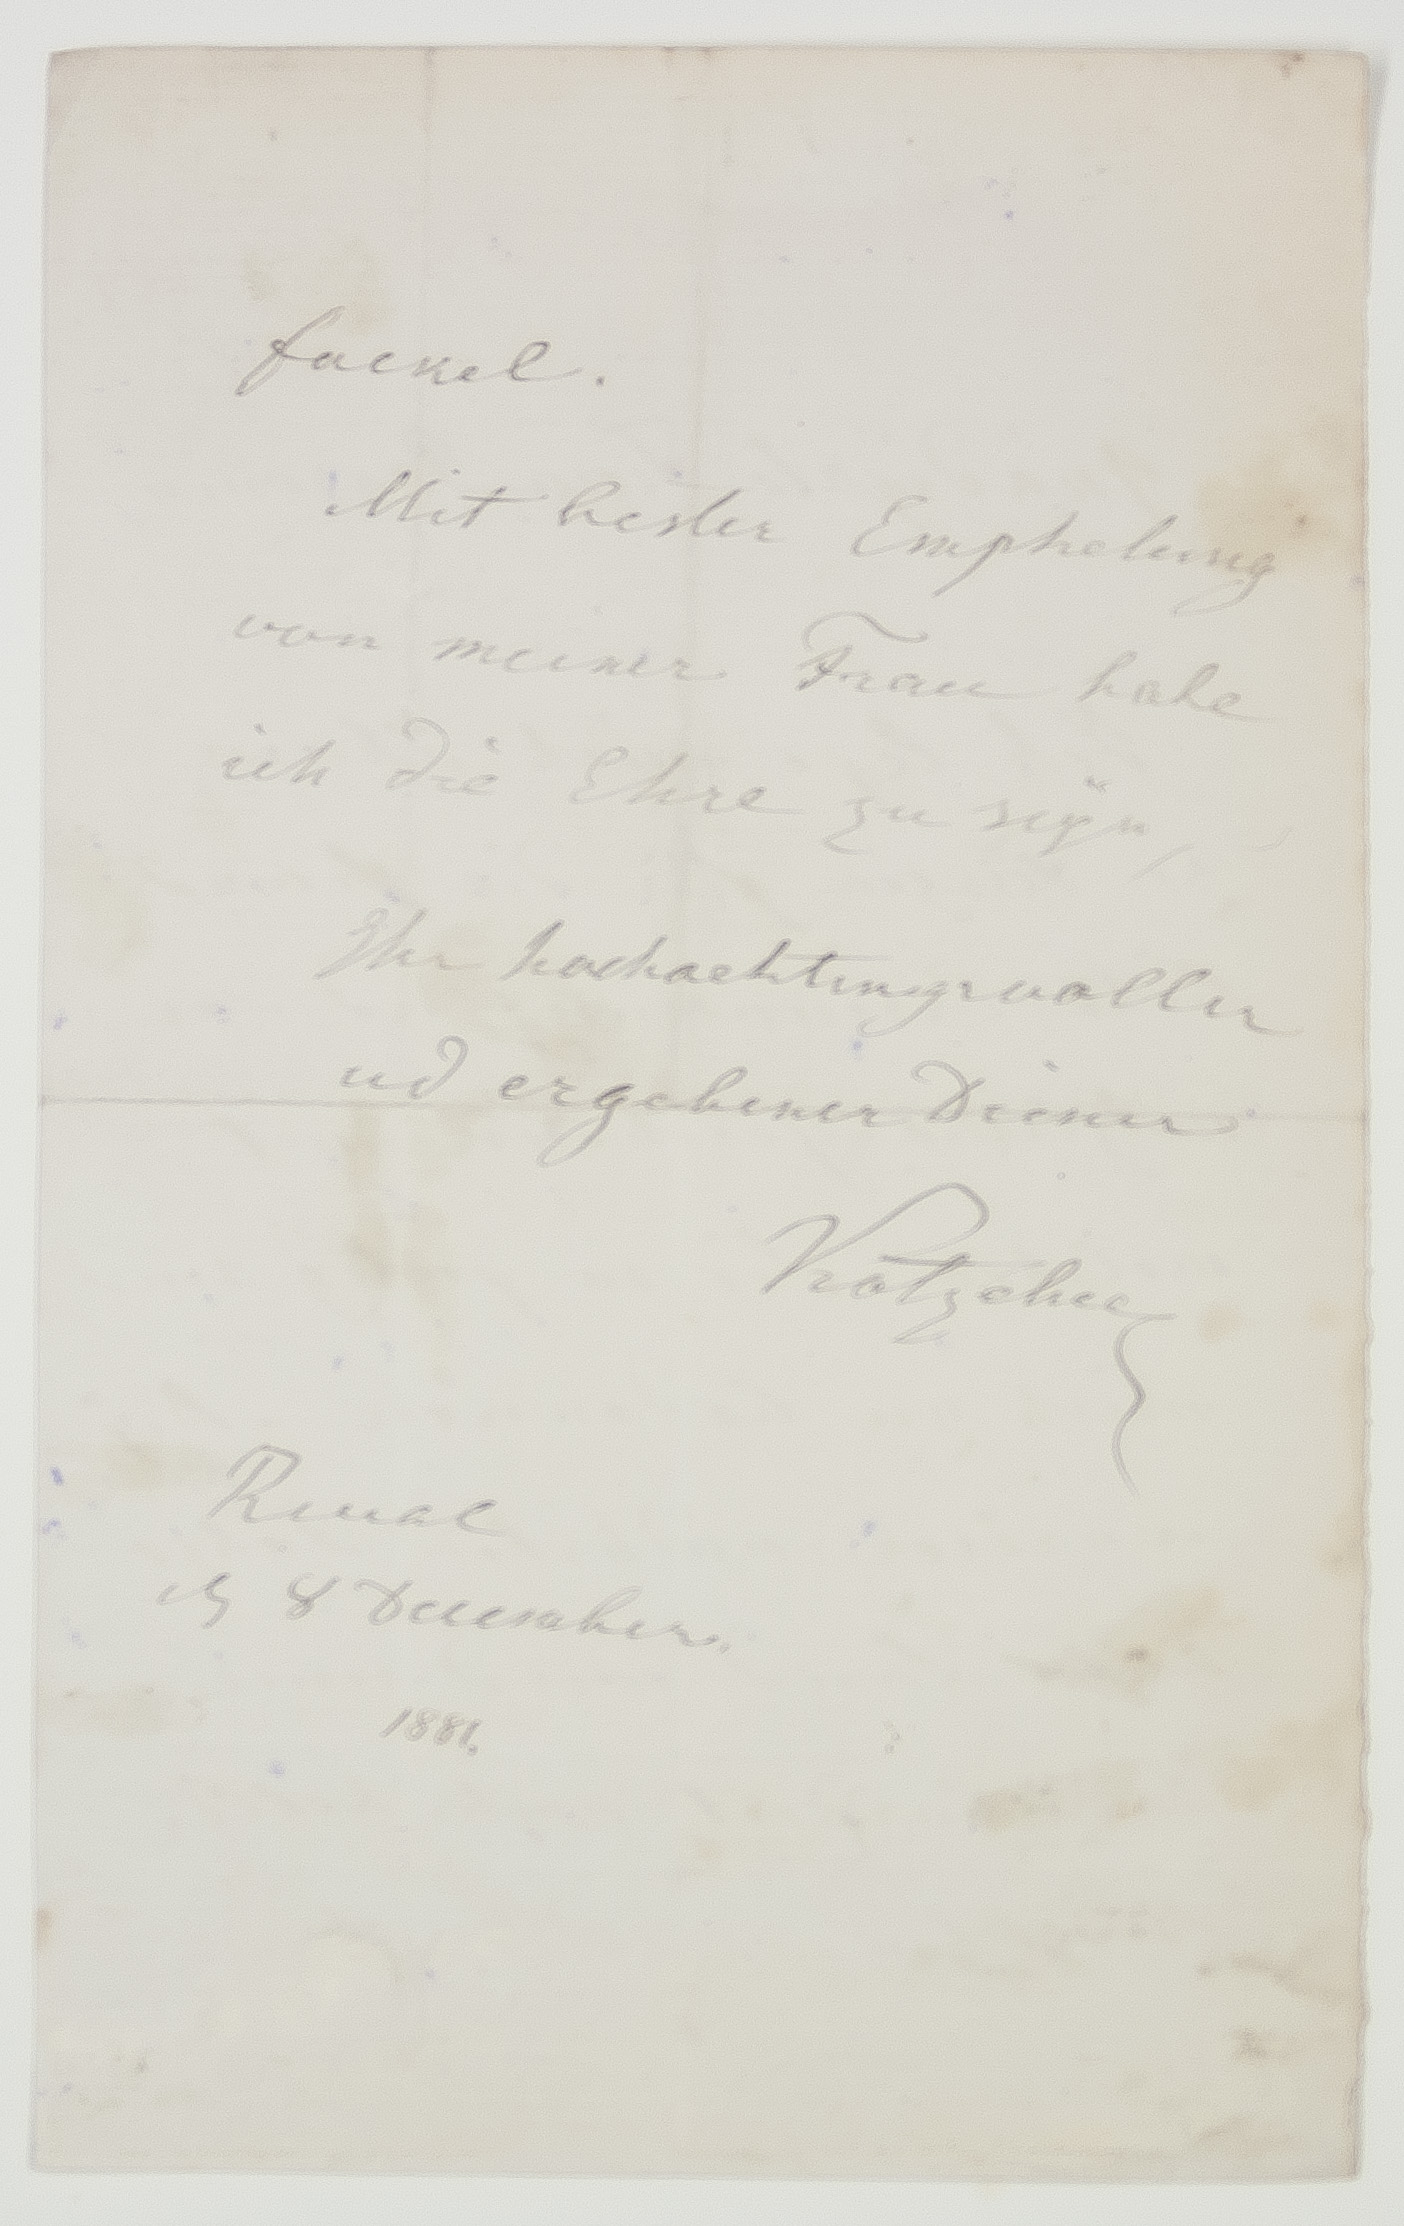 fackel.
Mit bester Emphelung
von meiner Frau habe
ich die Ehre zu seÿn,
Ihr hochachtungsvoller
ud ergebener Diener
Kotzebue
Reval
8 December.
1881.